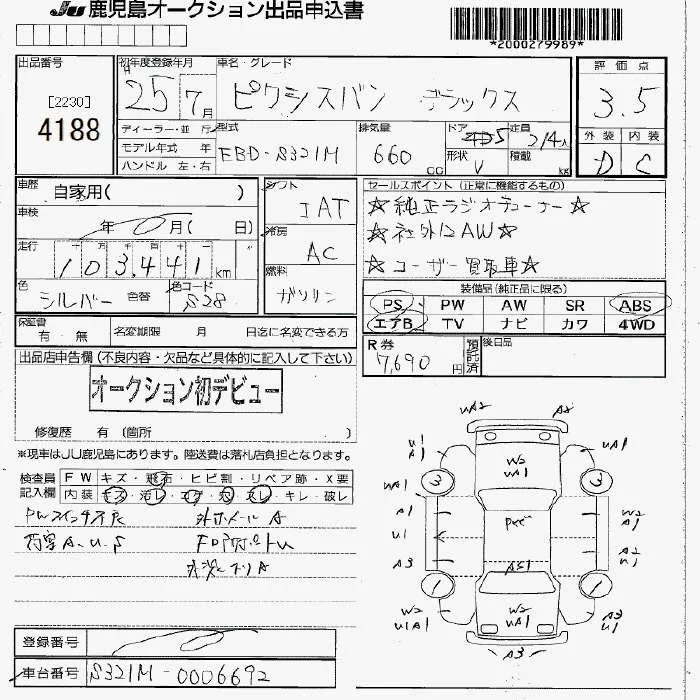 JU 鹿児島オークション出品申込書
*2000279989*
出品番号
[2230]
4188
初年度登録年月
H 25 7月
車名・グレード
ピクシスバン デラックス
評価点
3.5
外装 内装
D C
ディーラー・並 行
モデル年式 年
ハンドル 左・右
型式
EBD-S321M
排気量
660 cc
ドア 5
形状 V
定員 2/4人
積載 kg
車歴 自家用( )
車検 年 月( 日)
走行 十 万 千 百 十 一
103,441 km
色 シルバー 色替
色コード S28
シフト IAT
冷房 AC
燃料 ガソリン
セールスポイント (正常に機能するもの)
☆純正ラジオチューナー☆
☆社外12AW☆
☆ユーザー買取車☆
装備品(純正品に限る)
PS PW AW SR ABS
エアB TV ナビ カワ 4WD
保証書 有・無 名変期限 月 日迄に名変できる方
R券 7,690円
預託済
後日品
出品店申告欄(不良内容・欠品など具体的に記入して下さい)
オークション初デビュー
修復歴 有 (箇所 )
※現車はJU鹿児島にあります。陸送費は落札店負担となります。
検査員記入欄
FW キズ・飛石・ヒビ割・リペア跡・X要
内装 キズ・汚レ・コゲ・穴・スレ・キレ・破レ
外ホイールA
荷室A.U.S
登録番号
車台番号 S321M-0006692
UA2 A2
U1 A1 W2 UA1 UA1
3 3
WA1
A1 W2 A1
U1
A3 AS1 A2 U1
1 1
W2 UA1 W2 UA1 A3 U1
A3